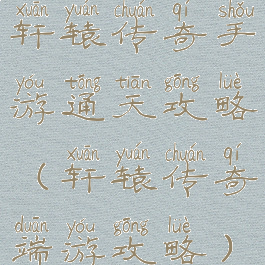 xuān yuán chuán qí shǒu
轩辕传奇手
yóu tōng tiān gōng lüè
游通天攻略
xuān yuán chuán qí
（轩辕传奇
duān yóu gōng lüè
端游攻略）